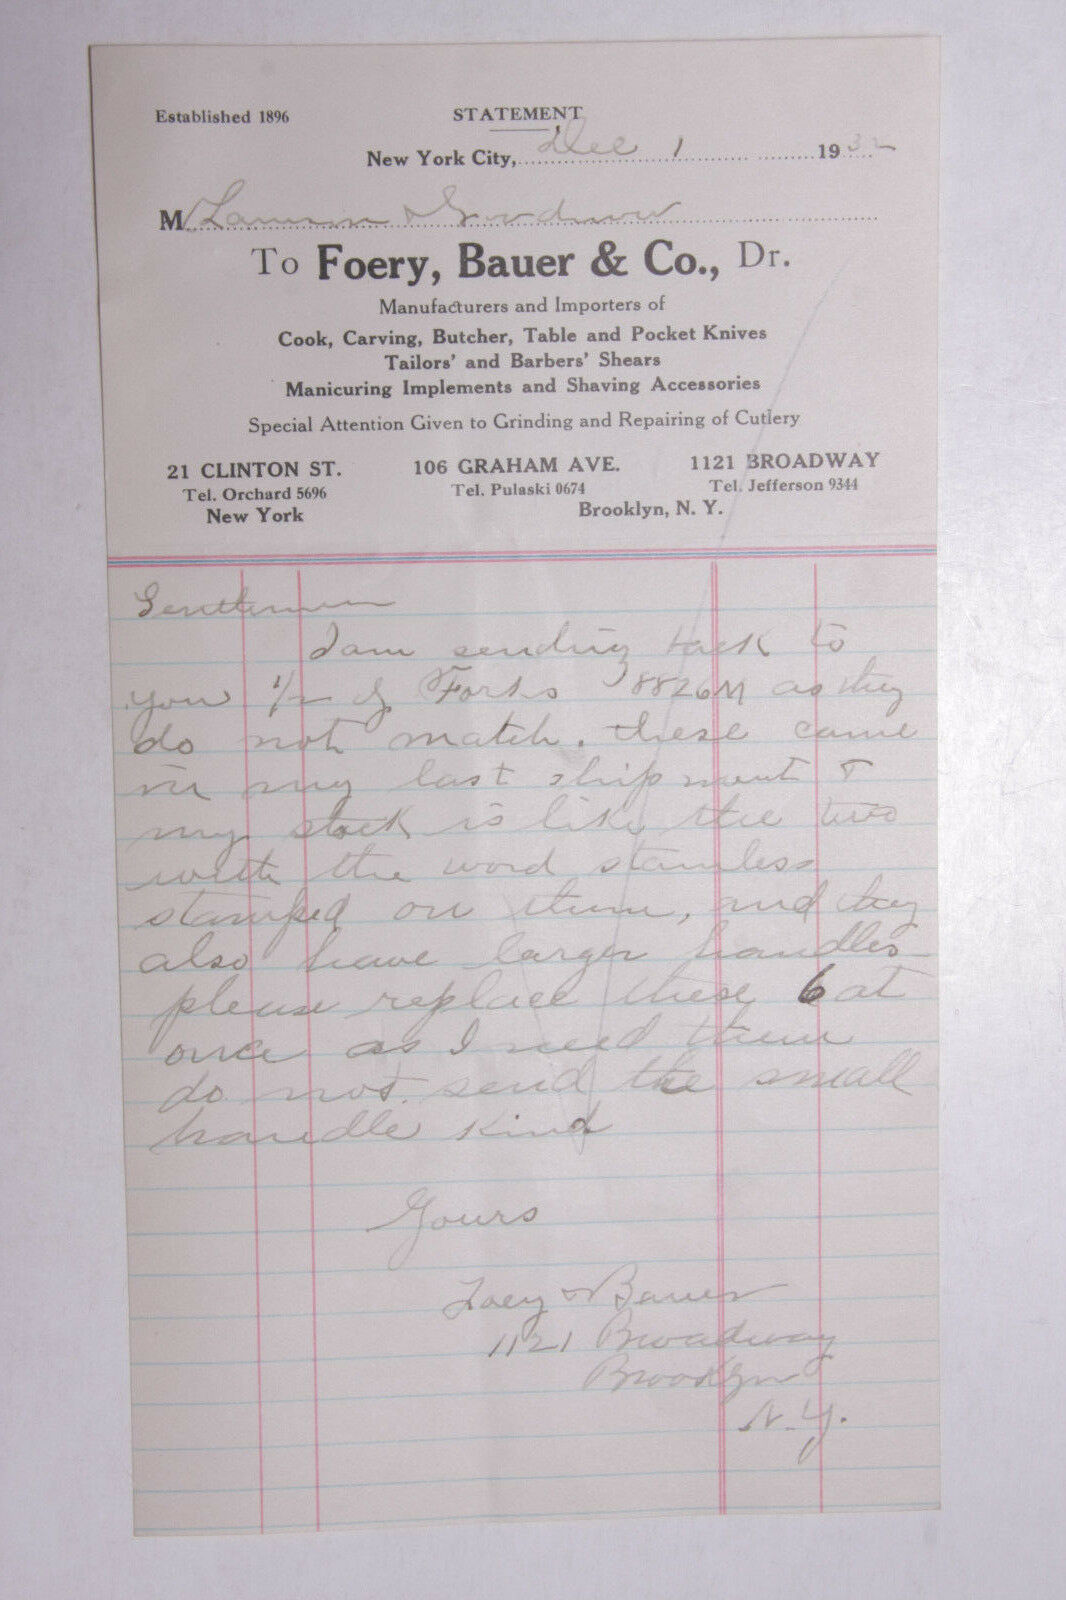 Established 1896
STATEMENT
New York City, Dec 1 1932
M Lamson & Goodnow
To Foery, Bauer & Co., Dr.
Manufacturers and Importers of
Cook, Carving, Butcher, Table and Pocket Knives
Tailors' and Barbers' Shears
Manicuring Implements and Shaving Accessories
Special Attention Given to Grinding and Repairing of Cutlery
21 CLINTON ST. 106 GRAHAM AVE. 1121 BROADWAY
Tel. Orchard 5696 Tel. Pulaski 0674 Tel. Jefferson 9344
New York Brooklyn, N. Y.
Gentlemen
I am sending back to
you 1/2 Forks 8826M as they
do not match. these came
in my last shipment &
my stock is like the two
with the word stainless
stamped on them, and they
also have larger handles
please replace these 6 at
once as I need them
do not send the small
handle kind
Yours
Foery & Bauer
1121 Broadway
Brooklyn
N. Y.